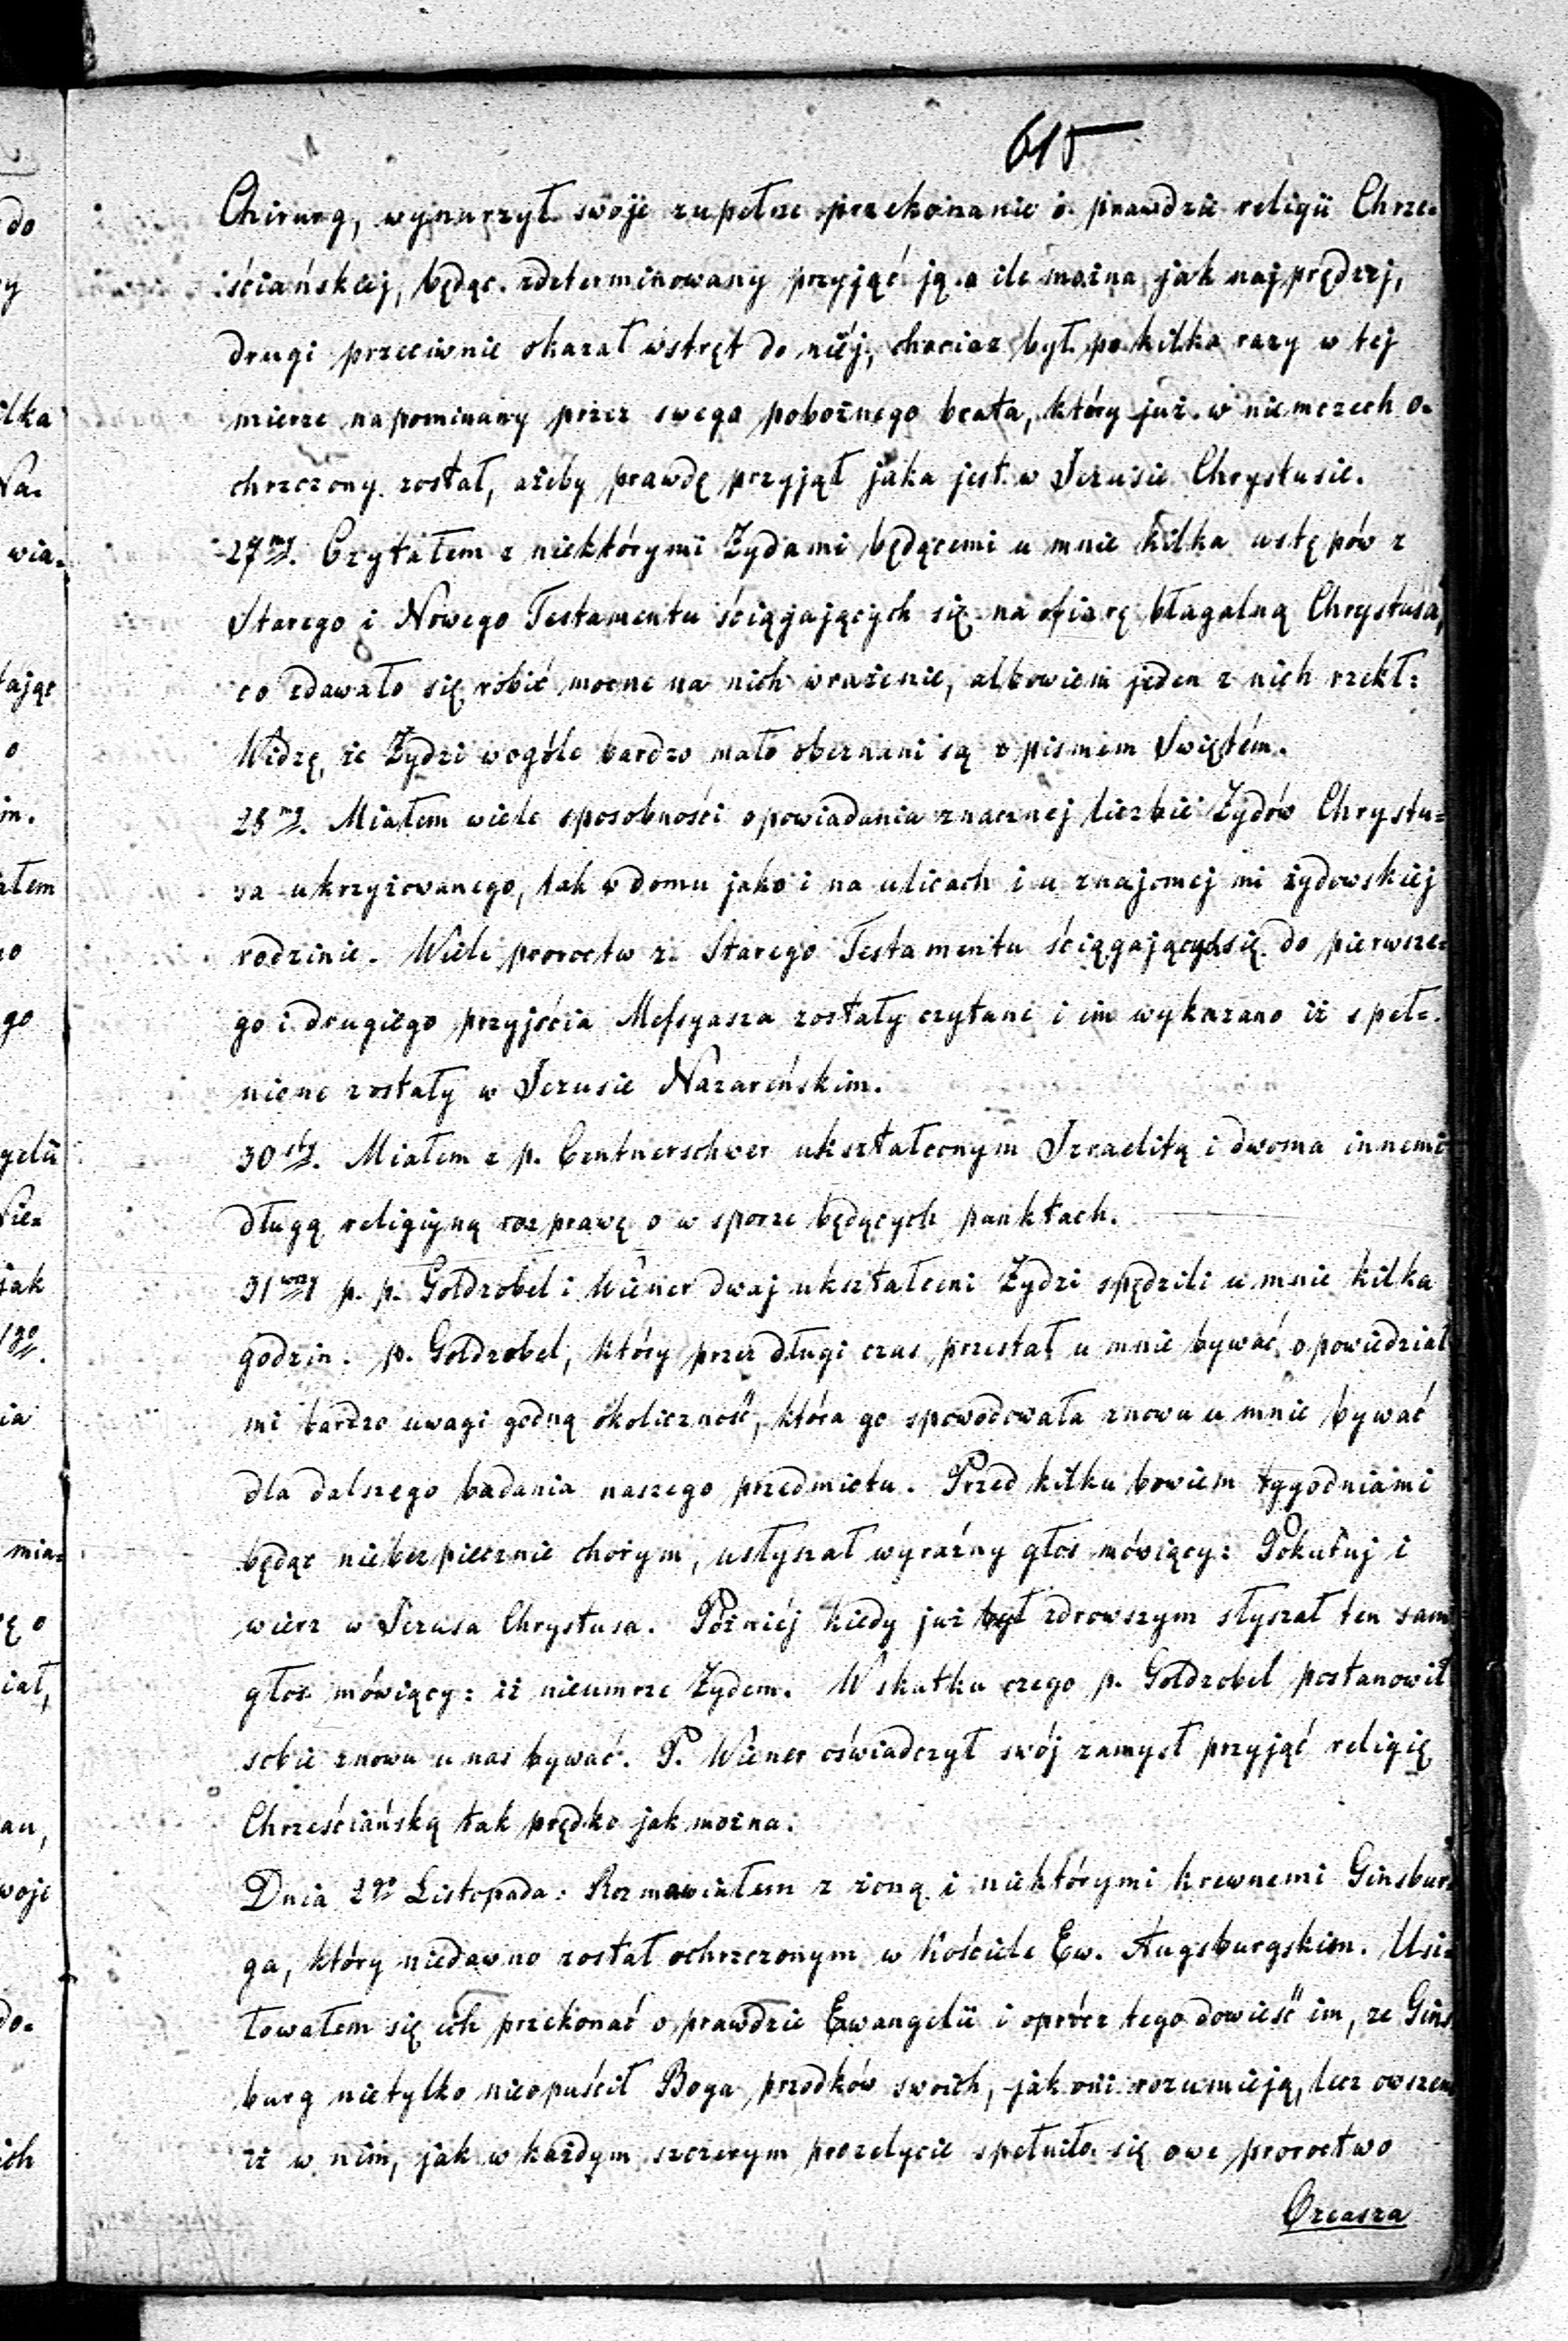 615
Chirurg, wynurzył swoje zupełne przekonanie o prawdzie religii Chrze-
ściańskiej, będąc zdeterminowany przyjąć ją o ile można jak najprędzej,
drugi przeciwnie okazał wstręt do niéj, chociaz był po kilka razy w tej
mierze napominany przez swego pobożnego brata, który już w niemczech o-
chrzczony został, ażeby prawdę przyjął jaka jest w Jezusie Chrystusie.
27my. Czytałem z niektórymi Żydami będącemi u mnie kilka ustępów z
Starego i Nowego Testamentu ściągających się na ofiarę błagalną Chrystusa,
co zdawało się robić mocne na nich wrażenie, albowiem jeden z nich rzekł:
Widzę, że Żydzi wogóle bardzo mało obeznani są z pismem Swiętém.
28my. Miałem wiele sposobności opowiadania znacznej liczbie Żydów Chrystu-
sa ukrzyżowanego, tak w domu jako i na ulicach i u znajomej mi żydowskiej
rodzinie. Wiele proroctw z Starego Testamentu ściągających się do pierwsze-
go i drugiego przyjścia Messyasza zostały czytane i im wykazano iż speł-
nione zostały w Jezusie Nazareńskim.
30sty. Miałem z p. Centnerschwer ukształconym Izraelitą i dwoma innemi
długą religijną rozprawę o w sporze będących punktach.
31wszy p. p. Goldzobel i Wiener dwaj ukształceni Żydzi spędzili u mnie kilka
godzin. p. Goldzobel, który przez długi czas przestał u mnie bywać, opowiedział
mi bardzo uwagi godną okoliczność, która go spowodowała znowu u mnie bywać
dla dalszego badania naszego przedmiotu. Przed kilku bowiem tygodniami
będąc niebezpiecznie chorym, usłyszał wyraźny głos mówiący: Pokutuj i
wierz w Jezusa Chrystusa. Póżniéj kiedy już był zdrowszym słyszał ten sam
głos mówiący: iż nieumrze Żydem. W skutku czego p. Goldzobel postanowił
sobie znowu u nas bywać. P. Wiener oświadczył swój zamysł przyjąć religię
Chrześciańską tak prędko jak można.
Dnia 2go Listopada: Rozmawiałem z żoną i niektórymi krewnemi Ginsbur-
ga, który niedawno został ochrzczonym w Kościele Ew. Augsburgskim. Usi-
łowałem się ich przekonać o prawdzie Ewangelii i oprócz tego dowieść im, ze Gins-
burg nietylko nieopuścił Boga przodków swoich, jak oni rozumieją, lecz owszem
iż w nim, jak w każdym szczerym prozelycie spełniło się owe proroctwo
Ozeasza